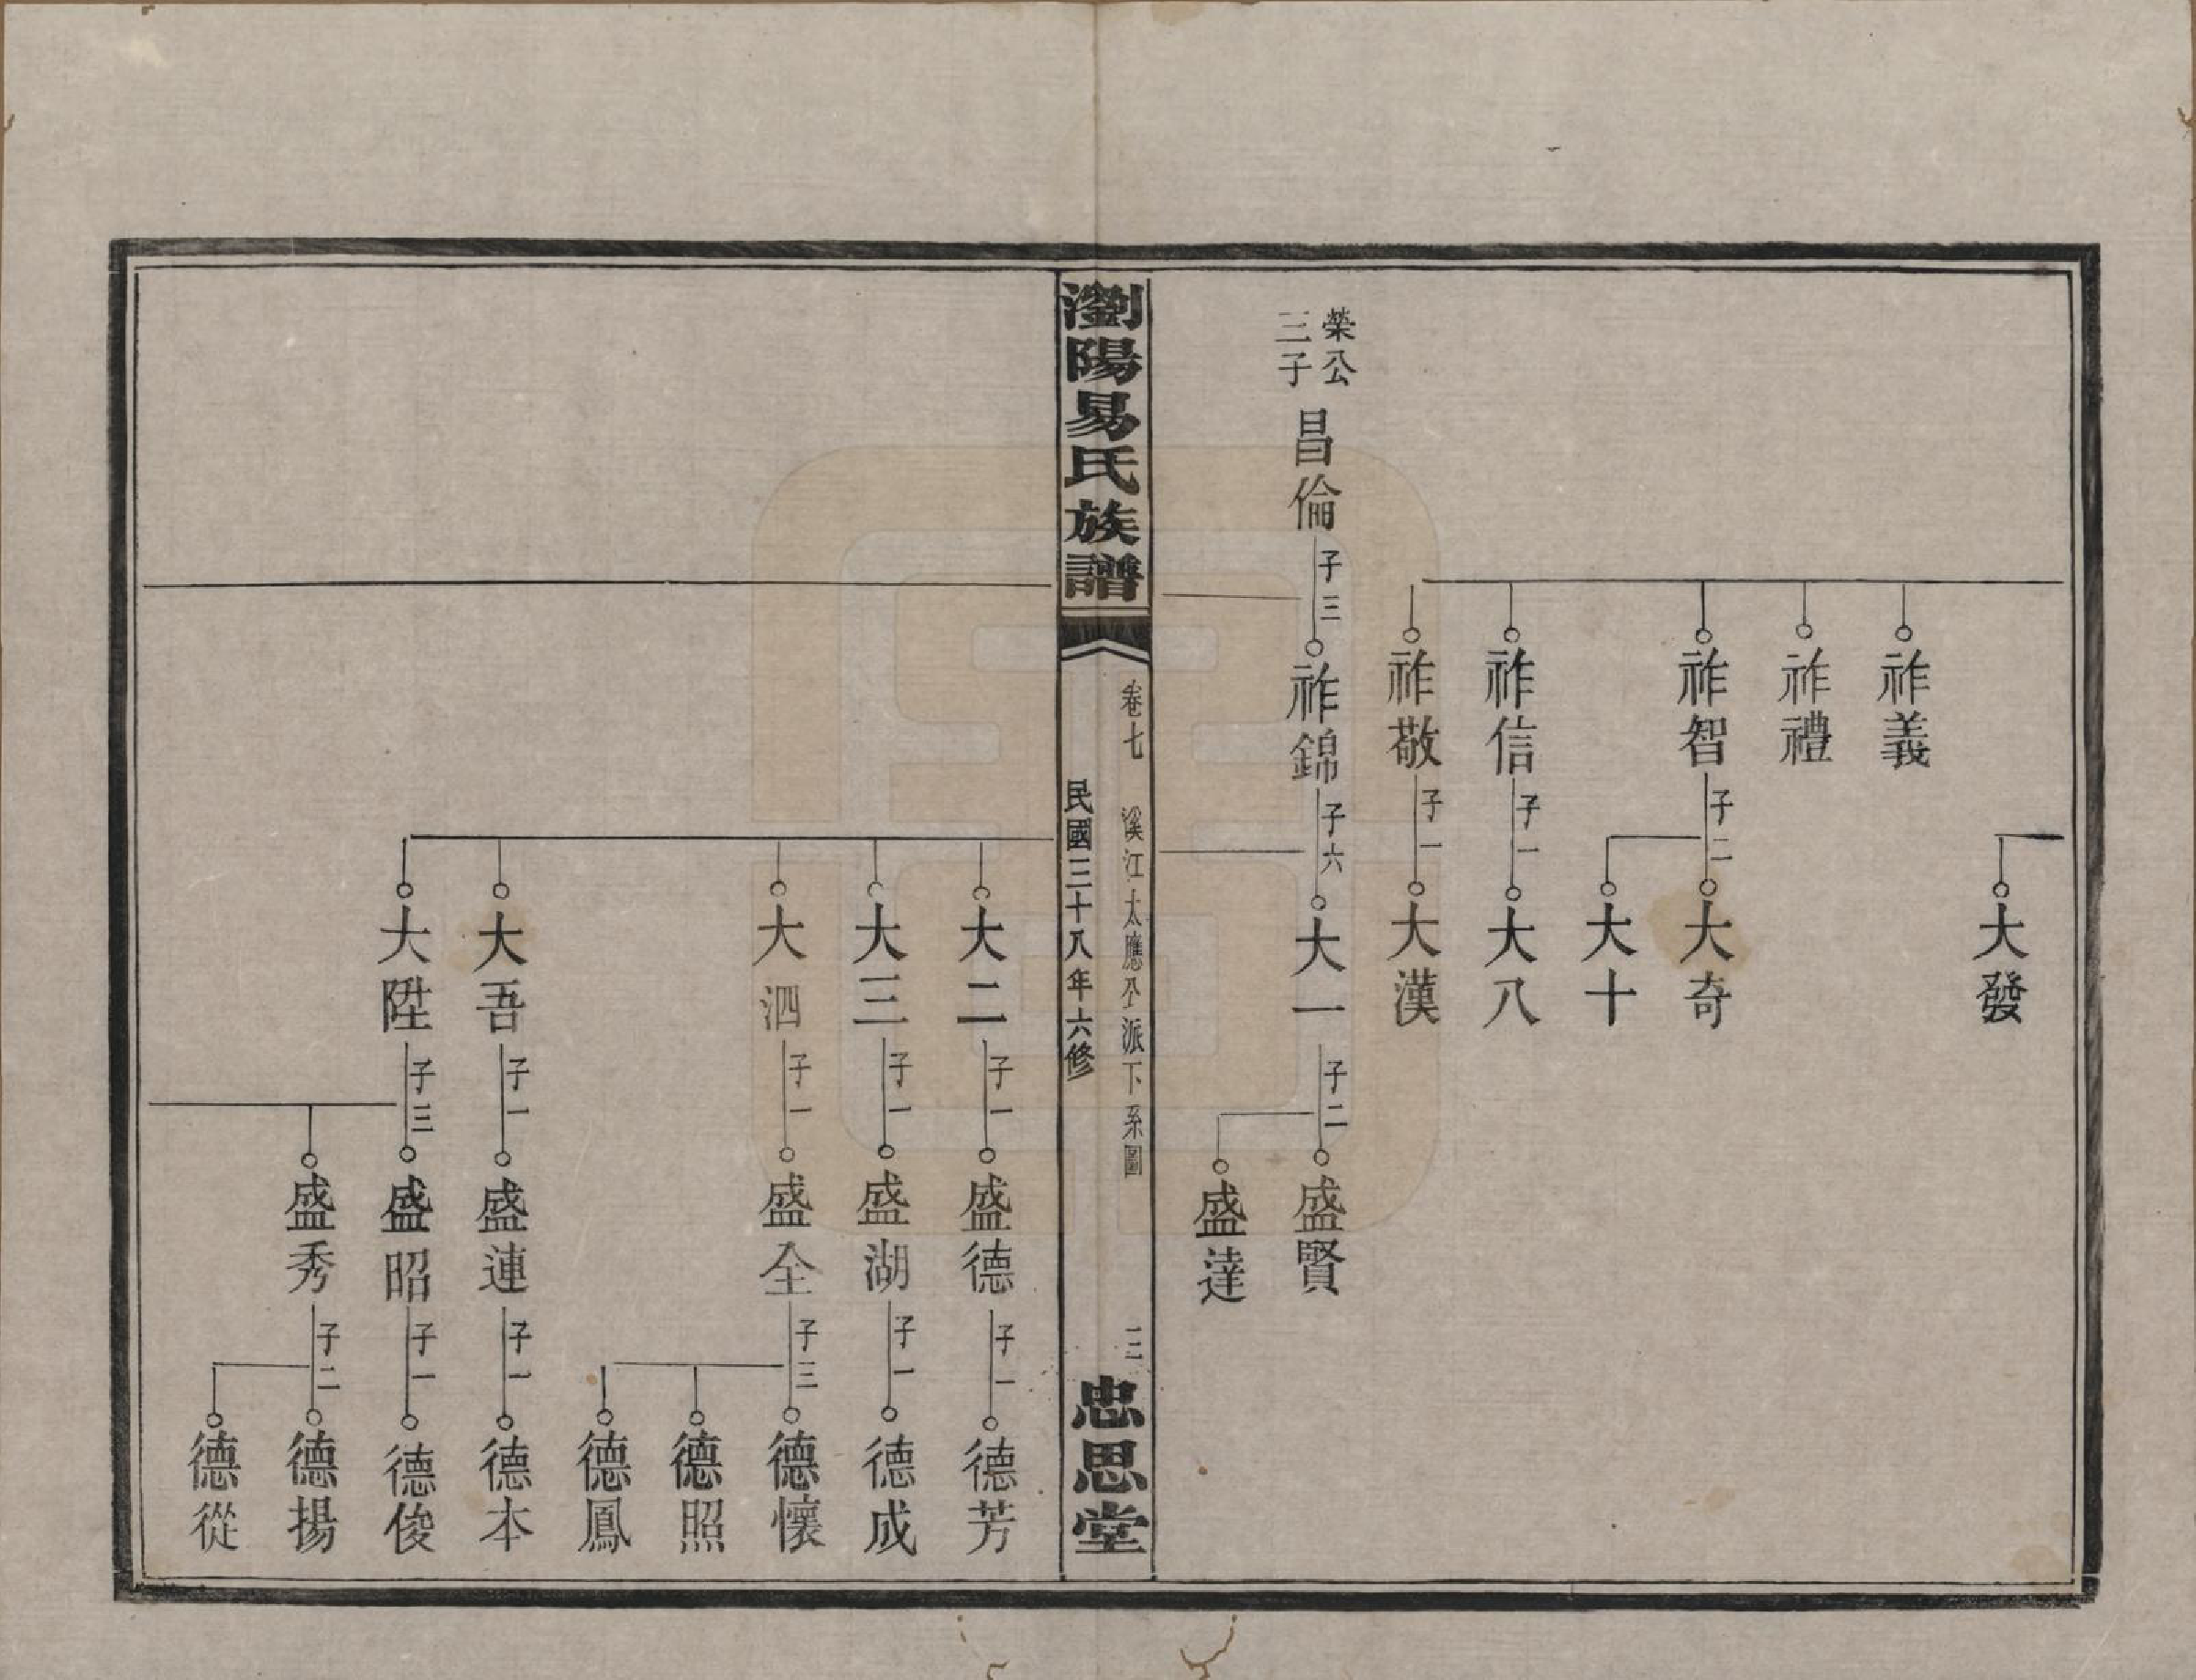 大發
祚義
祚禮
祚智
子二
大奇
大十
祚信
子一
大八
祚敬
子一
大漢
榮公
三子
昌倫
子三
祚錦
子六
大一
子二
盛賢
盛達
瀏陽易氏族譜
卷七
溪江太應公派下系圖
三
民國三十八年六修
忠思堂
大二
子一
盛德
子一
德芳
大三
子一
盛湖
子一
德成
大泗
子一
盛全
子三
德懷
德照
德鳳
大吾
子一
盛連
子一
德本
大陞
子三
盛昭
子一
德俊
盛秀
子二
德揚
德從